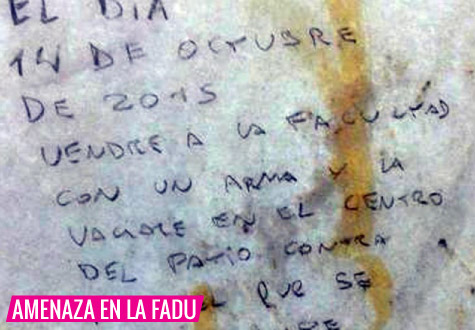 EL DIA
14 DE OCTUBRE
DE 2015
VENDRE A LA FACULTAD
CON UN ARMA Y LA
VACIARE EN EL CENTRO
DEL PATIO CONTRA A
EL QUE SE
AMENAZA EN LA FADU